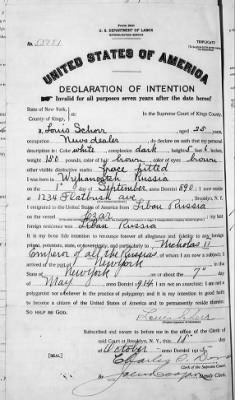 U. S. DEPARTMENT OF LABOR
NATURALIZATION SERVICE
No.
TRIPLICATE
UNITED STATES OF AMERICA
DECLARATION OF INTENTION
Invalid for all purposes seven years after the date hereof
State of New York,
County of Kings,
In the Supreme Court of Kings County.
I, Louis Schorr, aged 25 years,
occupation Newsdealer, do declare on oath that my personal
description is: Color white, complexion dark, height 5 feet 6 inches,
weight 150 pounds, color of hair brown, color of eyes brown
other visible distinctive marks face pitted
I was born in Russia
on the 1st day of September, anno Domini 1890; I now reside
at 1234 Flatbush ave, Brooklyn, N. Y.
I emigrated to the United States of America from Libau Russia
on the vessel Czar; my last
foreign residence was Libau Russia
It is my bona fide intention to renounce forever all allegiance and fidelity to any foreign
prince, potentate, state, or sovereignty, and particularly to Nicholas II
Emperor of all the Russias, of whom I am now a subject; I
arrived at the port of New York, in the
State of New York, on or about the 7th day
of May, anno Domini 1914; I am not an anarchist; I am not a
polygamist nor a believer in the practice of polygamy; and it is my intention in good faith
to become a citizen of the United States of America and to permanently reside therein:
SO HELP ME GOD.
Subscribed and sworn to before me in the office of the Clerk of
said Court at Brooklyn, N. Y., this day
[SEAL] of October, anno Domini
Charles
Clerk of the Supreme Court.
Clerk.